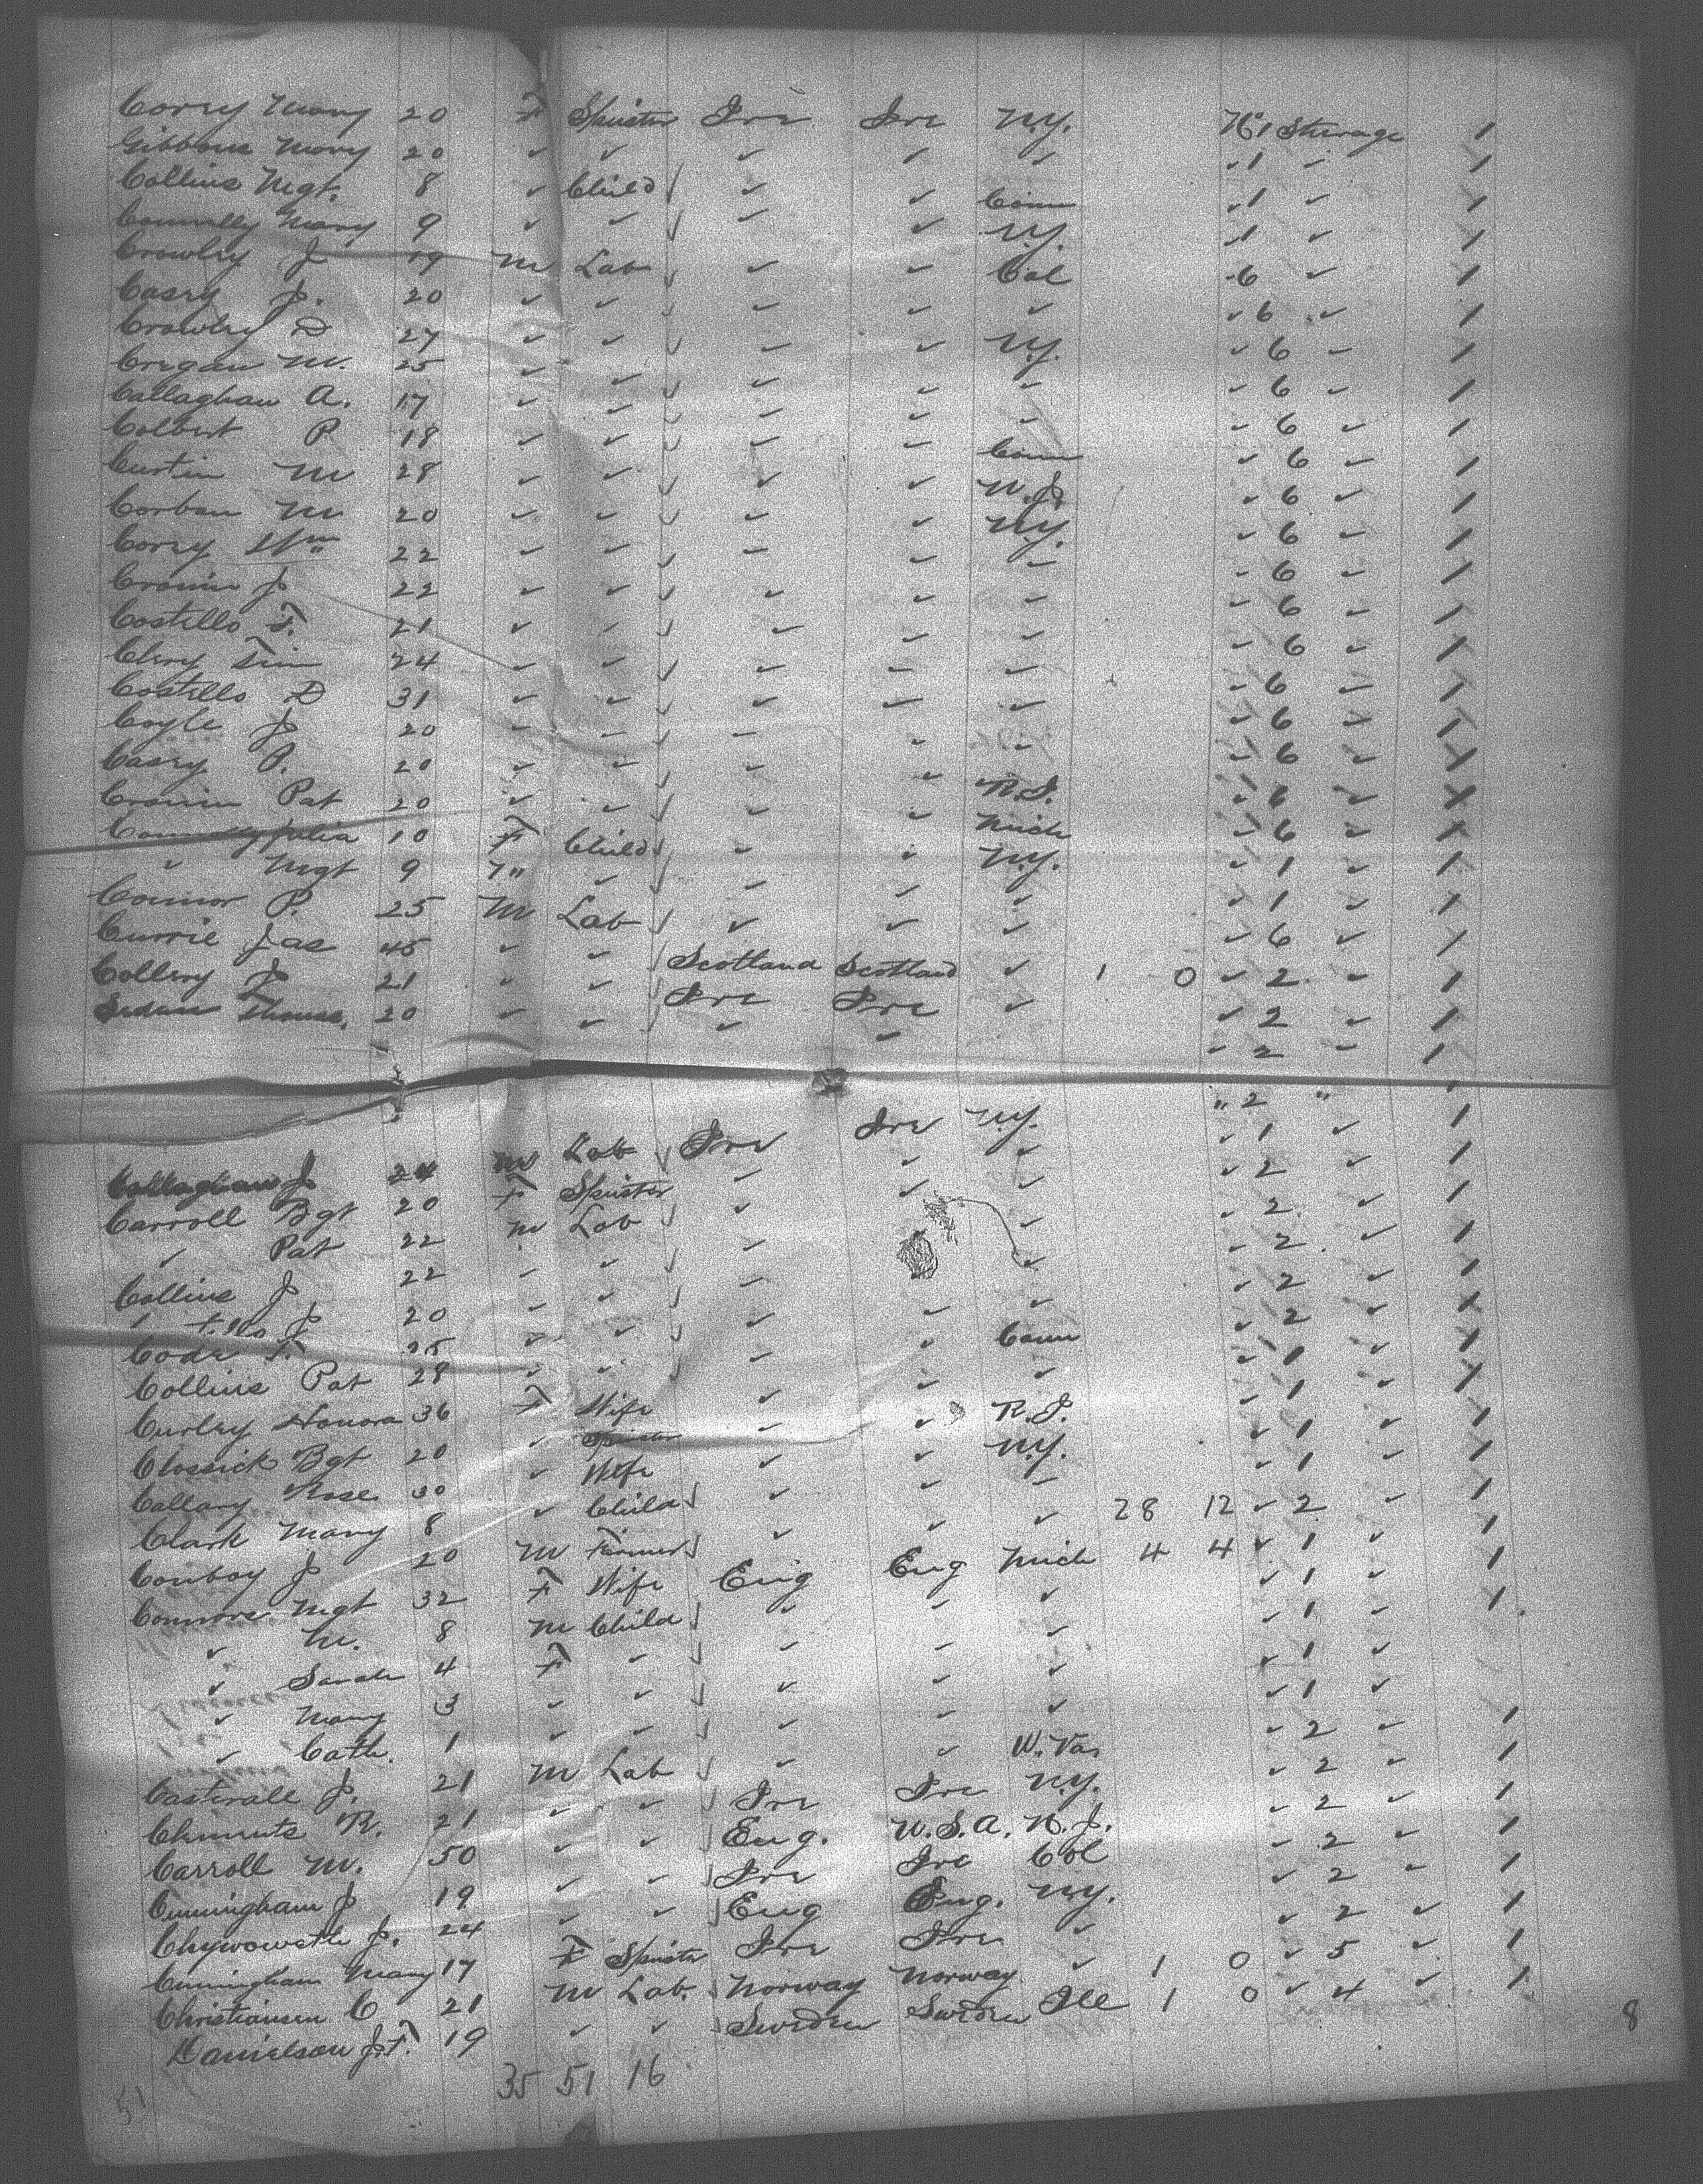 Corry Mary 20 F Spinster Ire Ire N.Y. No 1 Steerage 1
Gibbons Mary 20 ✓ ✓ ✓ ✓ ✓ ✓ 1 ✓ 1
Collins Mgt. 8 ✓ Child ✓ ✓ Conn ✓ 1 ✓ 1
Connolly Mary 9 ✓ ✓ ✓ ✓ N.Y. ✓ 1 ✓ 1
Crowley J 19 M Lab ✓ ✓ Cal ✓ 6 ✓ 1
Casey J. 20 ✓ ✓ ✓ ✓ ✓ ✓ 6 ✓ 1
Crowley D 27 ✓ ✓ ✓ ✓ N.Y. ✓ 6 ✓ 1
Cregan M. 25 ✓ ✓ ✓ ✓ ✓ ✓ 6 ✓ 1
Callaghan A. 17 ✓ ✓ ✓ ✓ ✓ ✓ 6 ✓ 1
Colbert P 18 ✓ ✓ ✓ ✓ Conn ✓ 6 ✓ 1
Curtin M 28 ✓ ✓ ✓ ✓ N.J. ✓ 6 ✓ 1
Corban M 20 ✓ ✓ ✓ ✓ N.Y. ✓ 6 ✓ 1
Corry Wm 22 ✓ ✓ ✓ ✓ ✓ ✓ 6 ✓ 1
Cronin J 22 ✓ ✓ ✓ ✓ ✓ ✓ 6 ✓ 1
Costello T. 21 ✓ ✓ ✓ ✓ ✓ ✓ 6 ✓ 1
Clery Tim 24 ✓ ✓ ✓ ✓ ✓ ✓ 6 ✓ 1
Costello D 31 ✓ ✓ ✓ ✓ ✓ ✓ 6 ✓ 1
Coyle J 20 ✓ ✓ ✓ ✓ ✓ ✓ 6 ✓ 1
Casey P. 20 ✓ ✓ ✓ ✓ R.I. ✓ 6 ✓ 1
Cronin Pat 20 ✓ ✓ ✓ ✓ Mich ✓ 6 ✓ 1
Connolly Julia 10 F Child ✓ ✓ N.Y. ✓ 1 ✓ 1
✓ Mgt 9 " ✓ ✓ ✓ ✓ ✓ 1 ✓ 1
Connor P. 25 M Lab ✓ ✓ ✓ ✓ 6 ✓ 1
Currie Jas 45 ✓ ✓ Scotland Scotland ✓ 1 0 ✓ 2 ✓ 1
Collery J 21 " ✓ Ire Ire ✓ ✓ 2 ✓ 1
Thomas. 20 ✓ ✓ ✓ ✓ ✓ 2 ✓ 1
Callaghan J 24 M Lab Ire Ire N.Y. " 2 " 1
Carroll Bgt 20 F Spinster ✓ ✓ ✓ ✓ 1 ✓ 1
✓ Pat 22 M Lab ✓ ✓ ✓ ✓ 2 ✓ 1
Collins J 22 ✓ ✓ ✓ ✓ ✓ 2 ✓ 1
J 20 ✓ ✓ ✓ ✓ ✓ 2 ✓ 1
Code T. 25 ✓ ✓ ✓ ✓ ✓ 2 ✓ 1
Collins Pat 28 ✓ ✓ ✓ ✓ Conn ✓ 2 ✓ 1
Curley Honora 36 F Wife ✓ ✓ ✓ ✓ 1 ✓ 1
Clossick Bgt 20 ✓ Spinster ✓ ✓ R.I. ✓ 1 ✓ 1
Callary Rose 30 ✓ Wife ✓ ✓ N.Y. ✓ 1 ✓ 1
Clark Mary 8 ✓ Child ✓ ✓ ✓ ✓ 1 ✓ 1
Conboy J 20 M Farmer ✓ ✓ ✓ 28 12 ✓ 2 ✓ 1
Connors Mgt 32 F Wife Eng Eng Mich 4 4 ✓ 1 ✓ 1
✓ M. 8 M Child ✓ ✓ ✓ ✓ 1 ✓ 1
✓ Sarah 4 F ✓ ✓ ✓ ✓ ✓ 1 ✓ 1.
✓ Mary 3 ✓ ✓ ✓ ✓ ✓ ✓ 1 ✓
✓ Cath. 1 ✓ ✓ ✓ ✓ ✓ ✓ 1 ✓
Casterall J. 21 M Lab ✓ ✓ W. Va. ✓ 2 ✓ 1
Clements R. 21 ✓ ✓ Ire Ire N.Y. ✓ 2 ✓ 1
Carroll M. 50 ✓ ✓ Eng. U.S.A. N.J. ✓ 2 ✓ 1
Cunningham J 19 ✓ ✓ Ire Ire Col ✓ 2 ✓ 1
Chywoweth J. 24 ✓ ✓ Eng Eng. N.Y. ✓ 2 ✓ 1
Cunningham Mary 17 F Spinster Ire Ire ✓ ✓ 2 ✓ 1
Christiansen C 21 M Lab. Norway Norway ✓ 1 0 ✓ 5 ✓ 1
Danielson J.T. 19 ✓ ✓ Sweden Sweden Ill 1 0 ✓ 4 ✓ 1
8
35 51 16
51